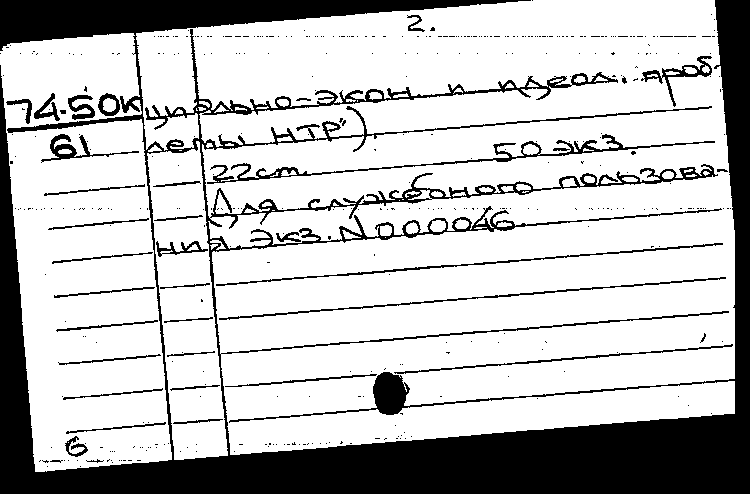 2.
74.50к циально-экон. и идеол. проб-
61 лемы НТР").
22см. 50 экз.
Для служебного пользова-
ния. Экз. N 000046.
6